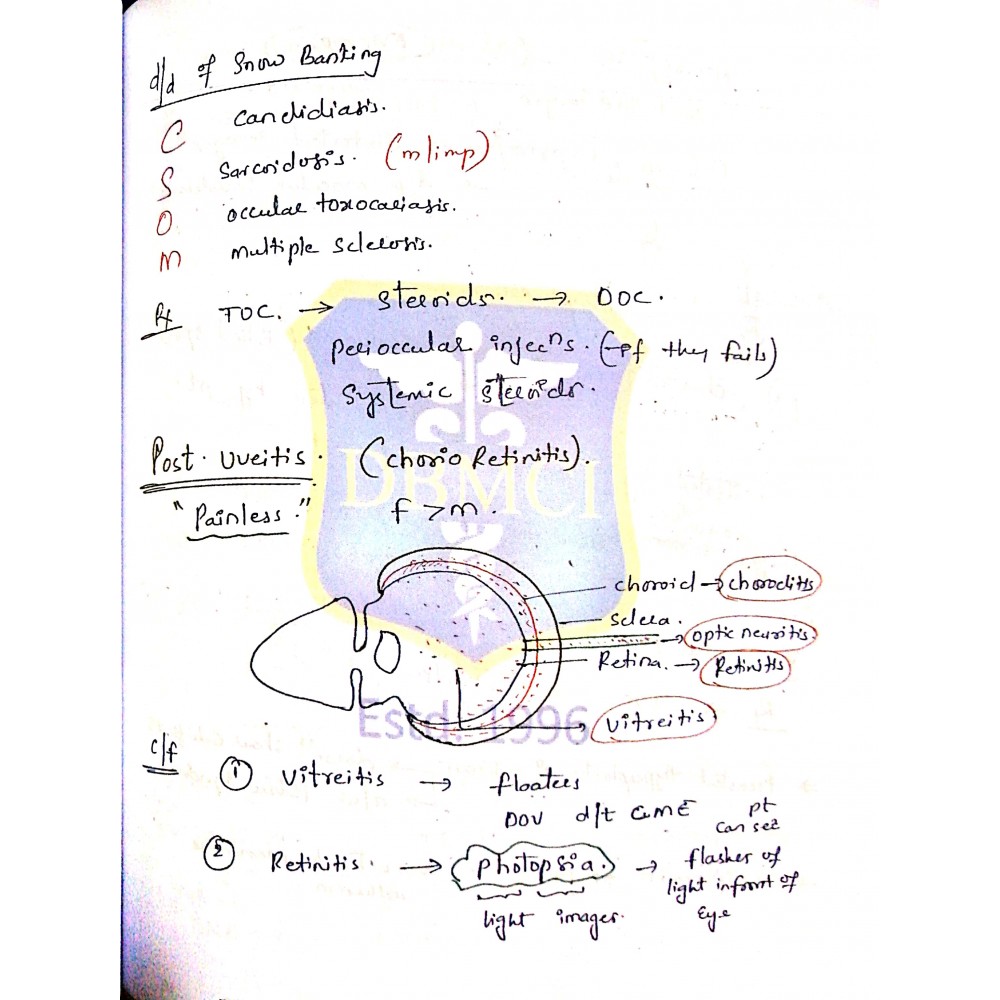 d/d of Snow Banking
C candidiasis.
S Sarcoidosis. (m/imp)
O occular toxocariasis.
m multiple sclerosis.
Rx TOC. → Steroids. → DOC.
Perioccular injecns. (If they fails)
Systemic steroids.
Post. Uveitis. (Chorio Retinitis).
"Painless." f > m.
DBMCI
choroid → choroditis
sclera.
→ optic neuritis.
Retina. → Retinitis
Vitreitis
Estd. 1996
c/f
① Vitreitis → floaters
DOV d/t CME pt can see
② Retinitis. → Photopsia. → flashes of
light infront of
light images. Eye